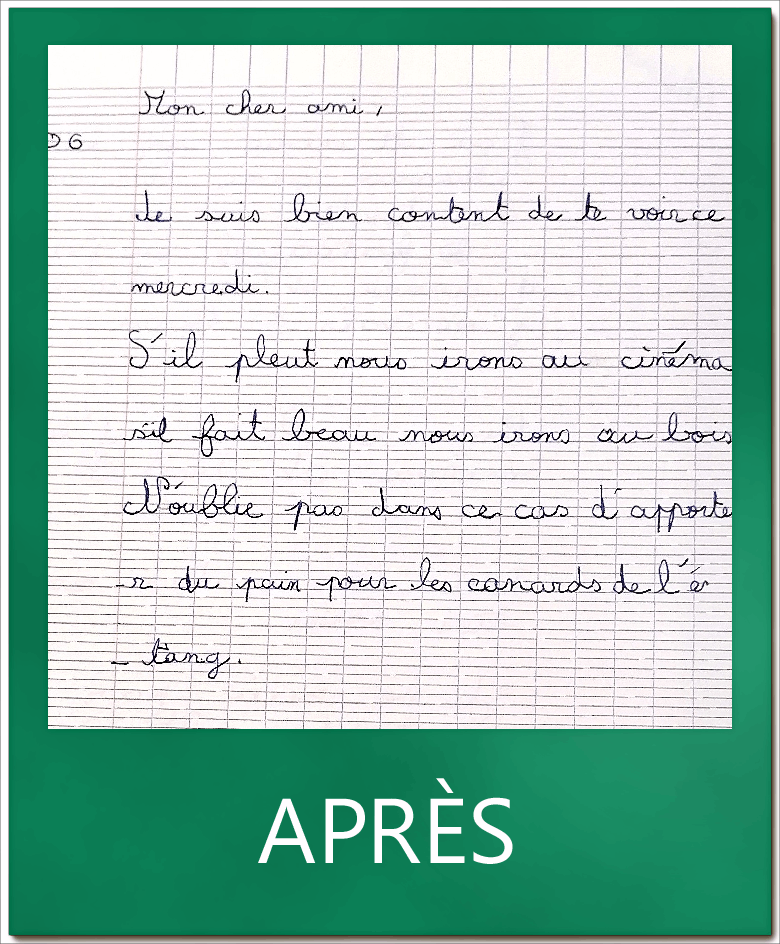 Mon cher ami,
D6
Je suis bien content de te voir ce
mercredi.
S'il pleut nous irons au cinéma
s'il fait beau nous irons au bois
N'oublie pas dans ce cas d'apporte
-r du pain pour les canards de l'é
- tang.
APRÈS